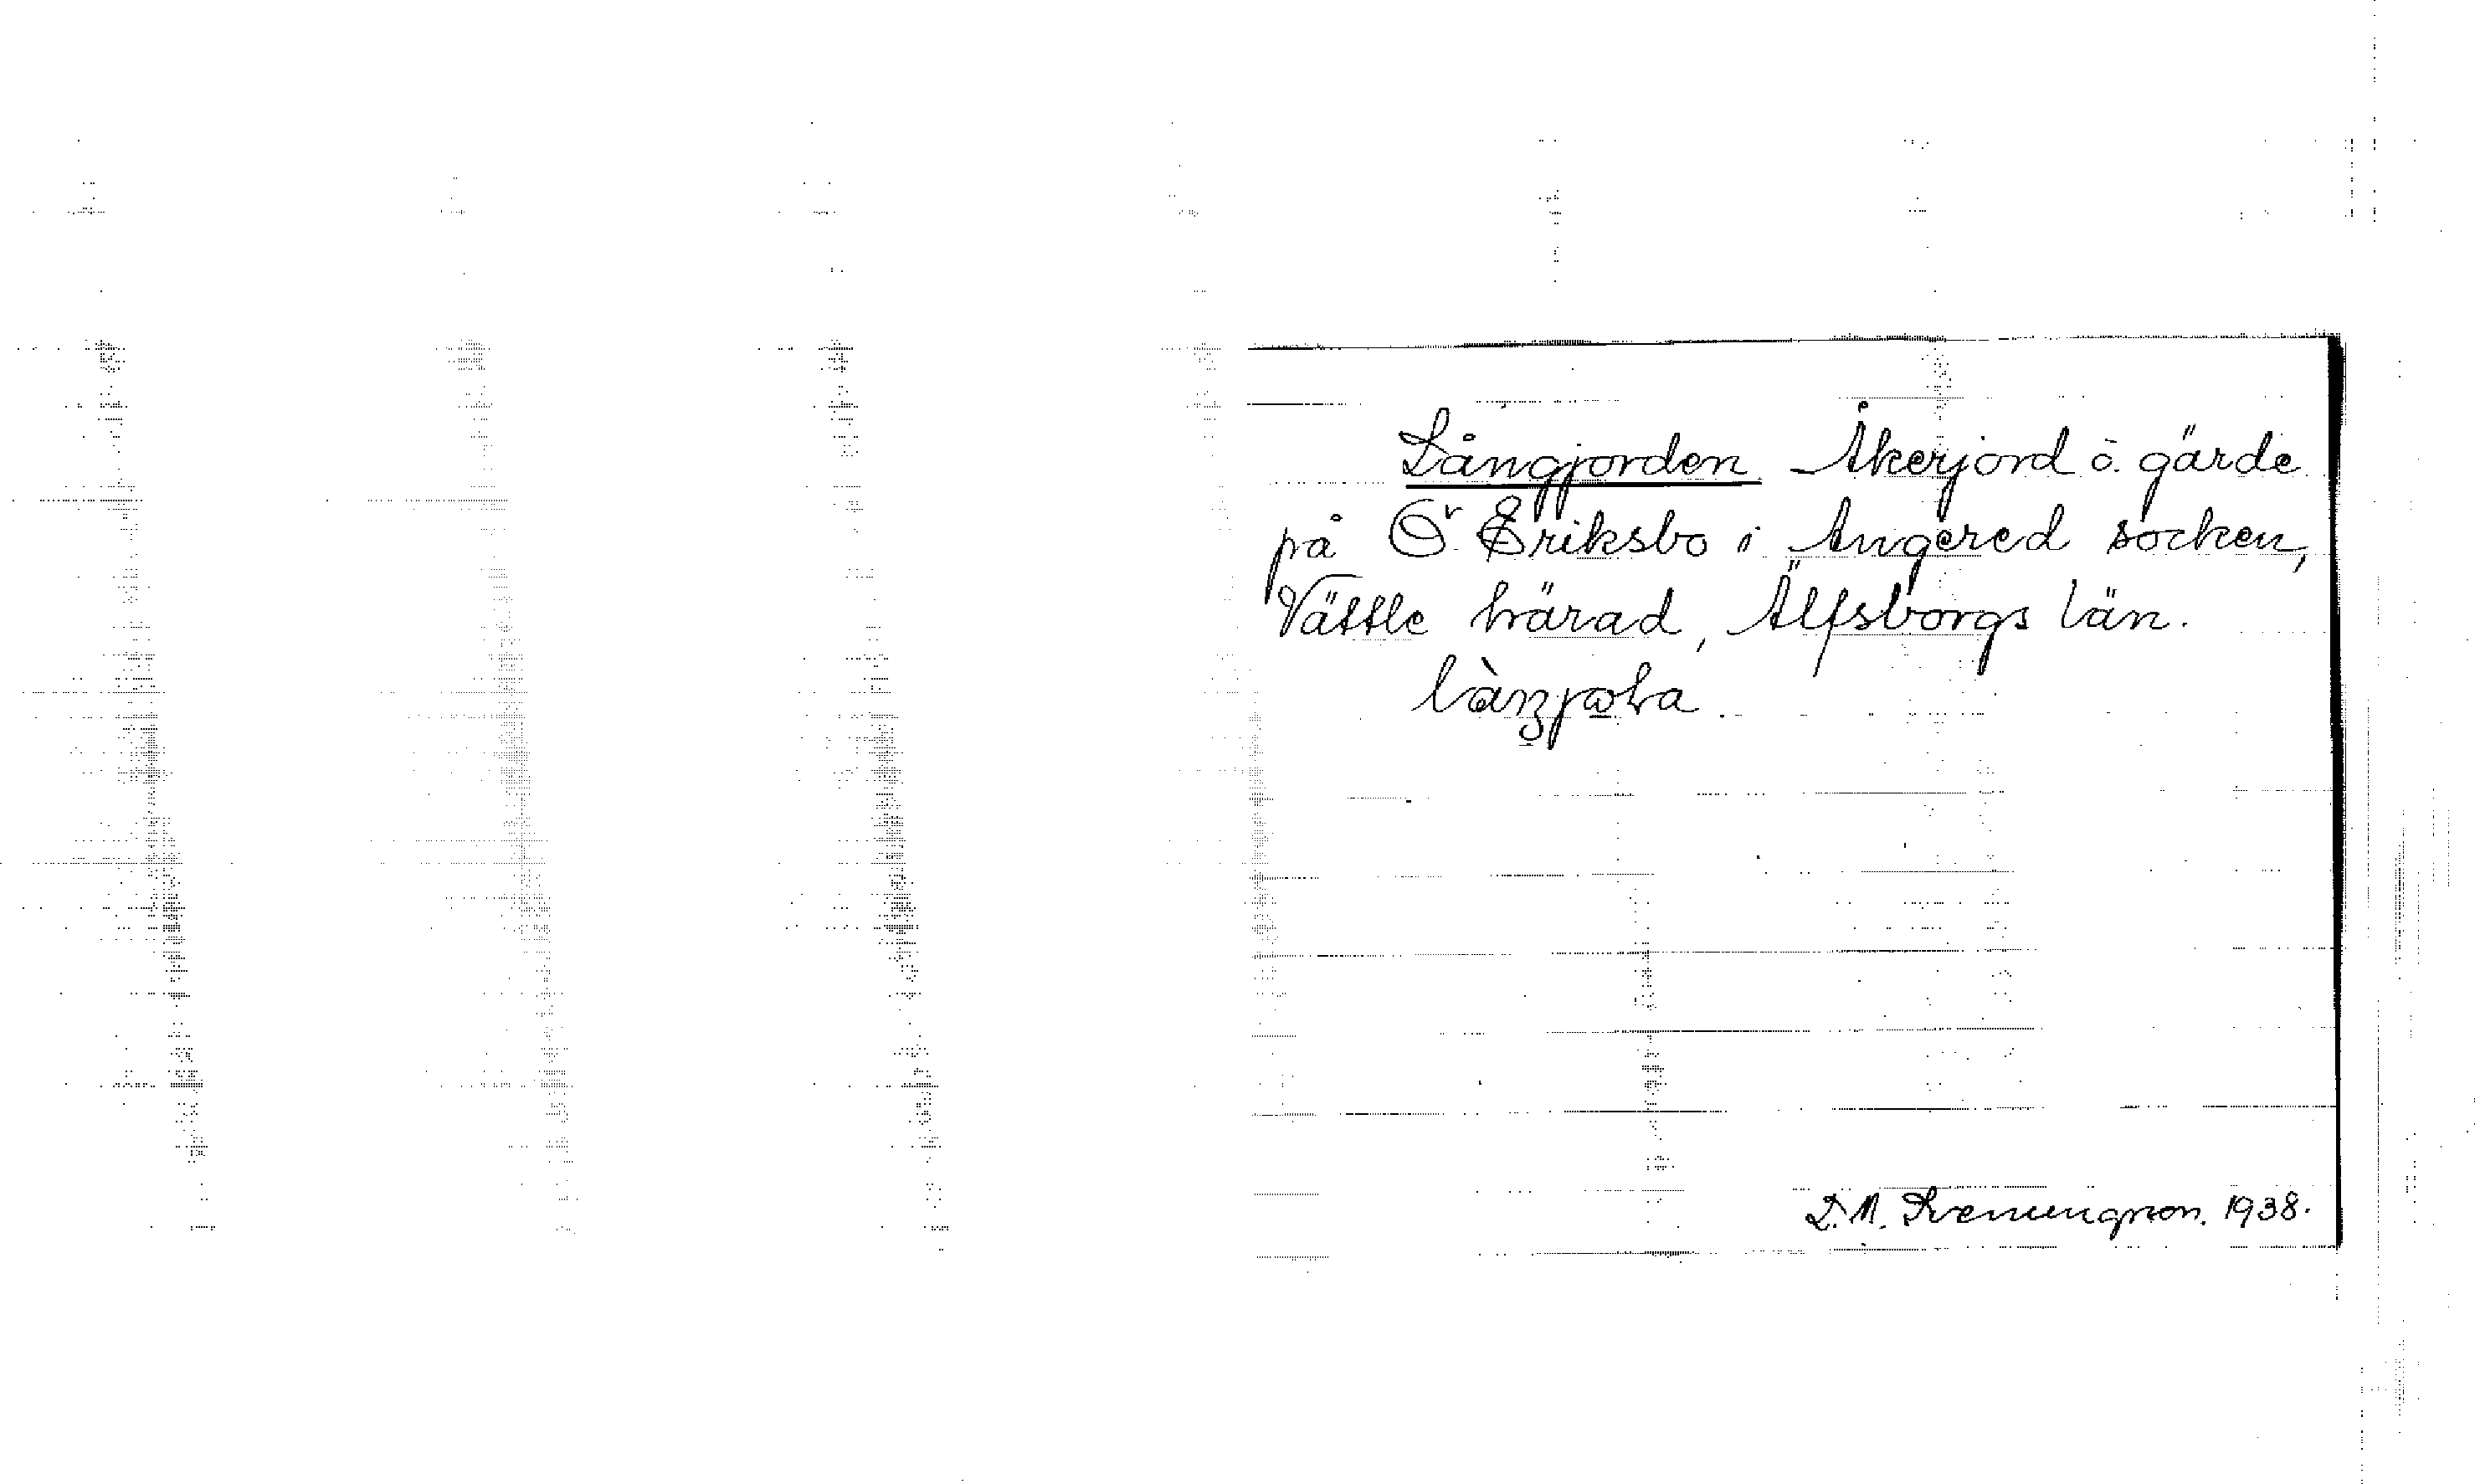 Långjorden Åkerjord å gärde
på Ö. Eriksbo i Angered socken,
Vättle härad, Älfsborgs län.
D. N. Svenungson. 1938.